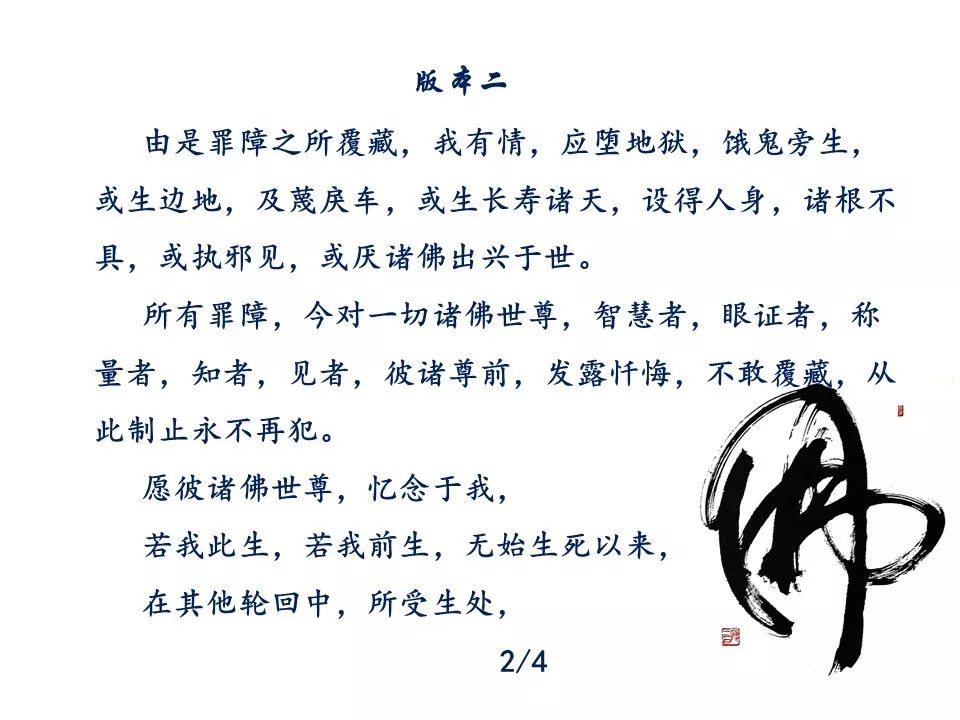 版本二
由是罪障之所覆藏，我有情，应堕地狱，饿鬼旁生，
或生边地，及蔑戾车，或生长寿诸天，设得人身，诸根不
具，或执邪见，或厌诸佛出兴于世。
所有罪障，今对一切诸佛世尊，智慧者，眼证者，称
量者，知者，见者，彼诸尊前，发露忏悔，不敢覆藏，从
此制止永不再犯。
愿彼诸佛世尊，忆念于我，
若我此生，若我前生，无始生死以来，
在其他轮回中，所受生处，
佛
2/4